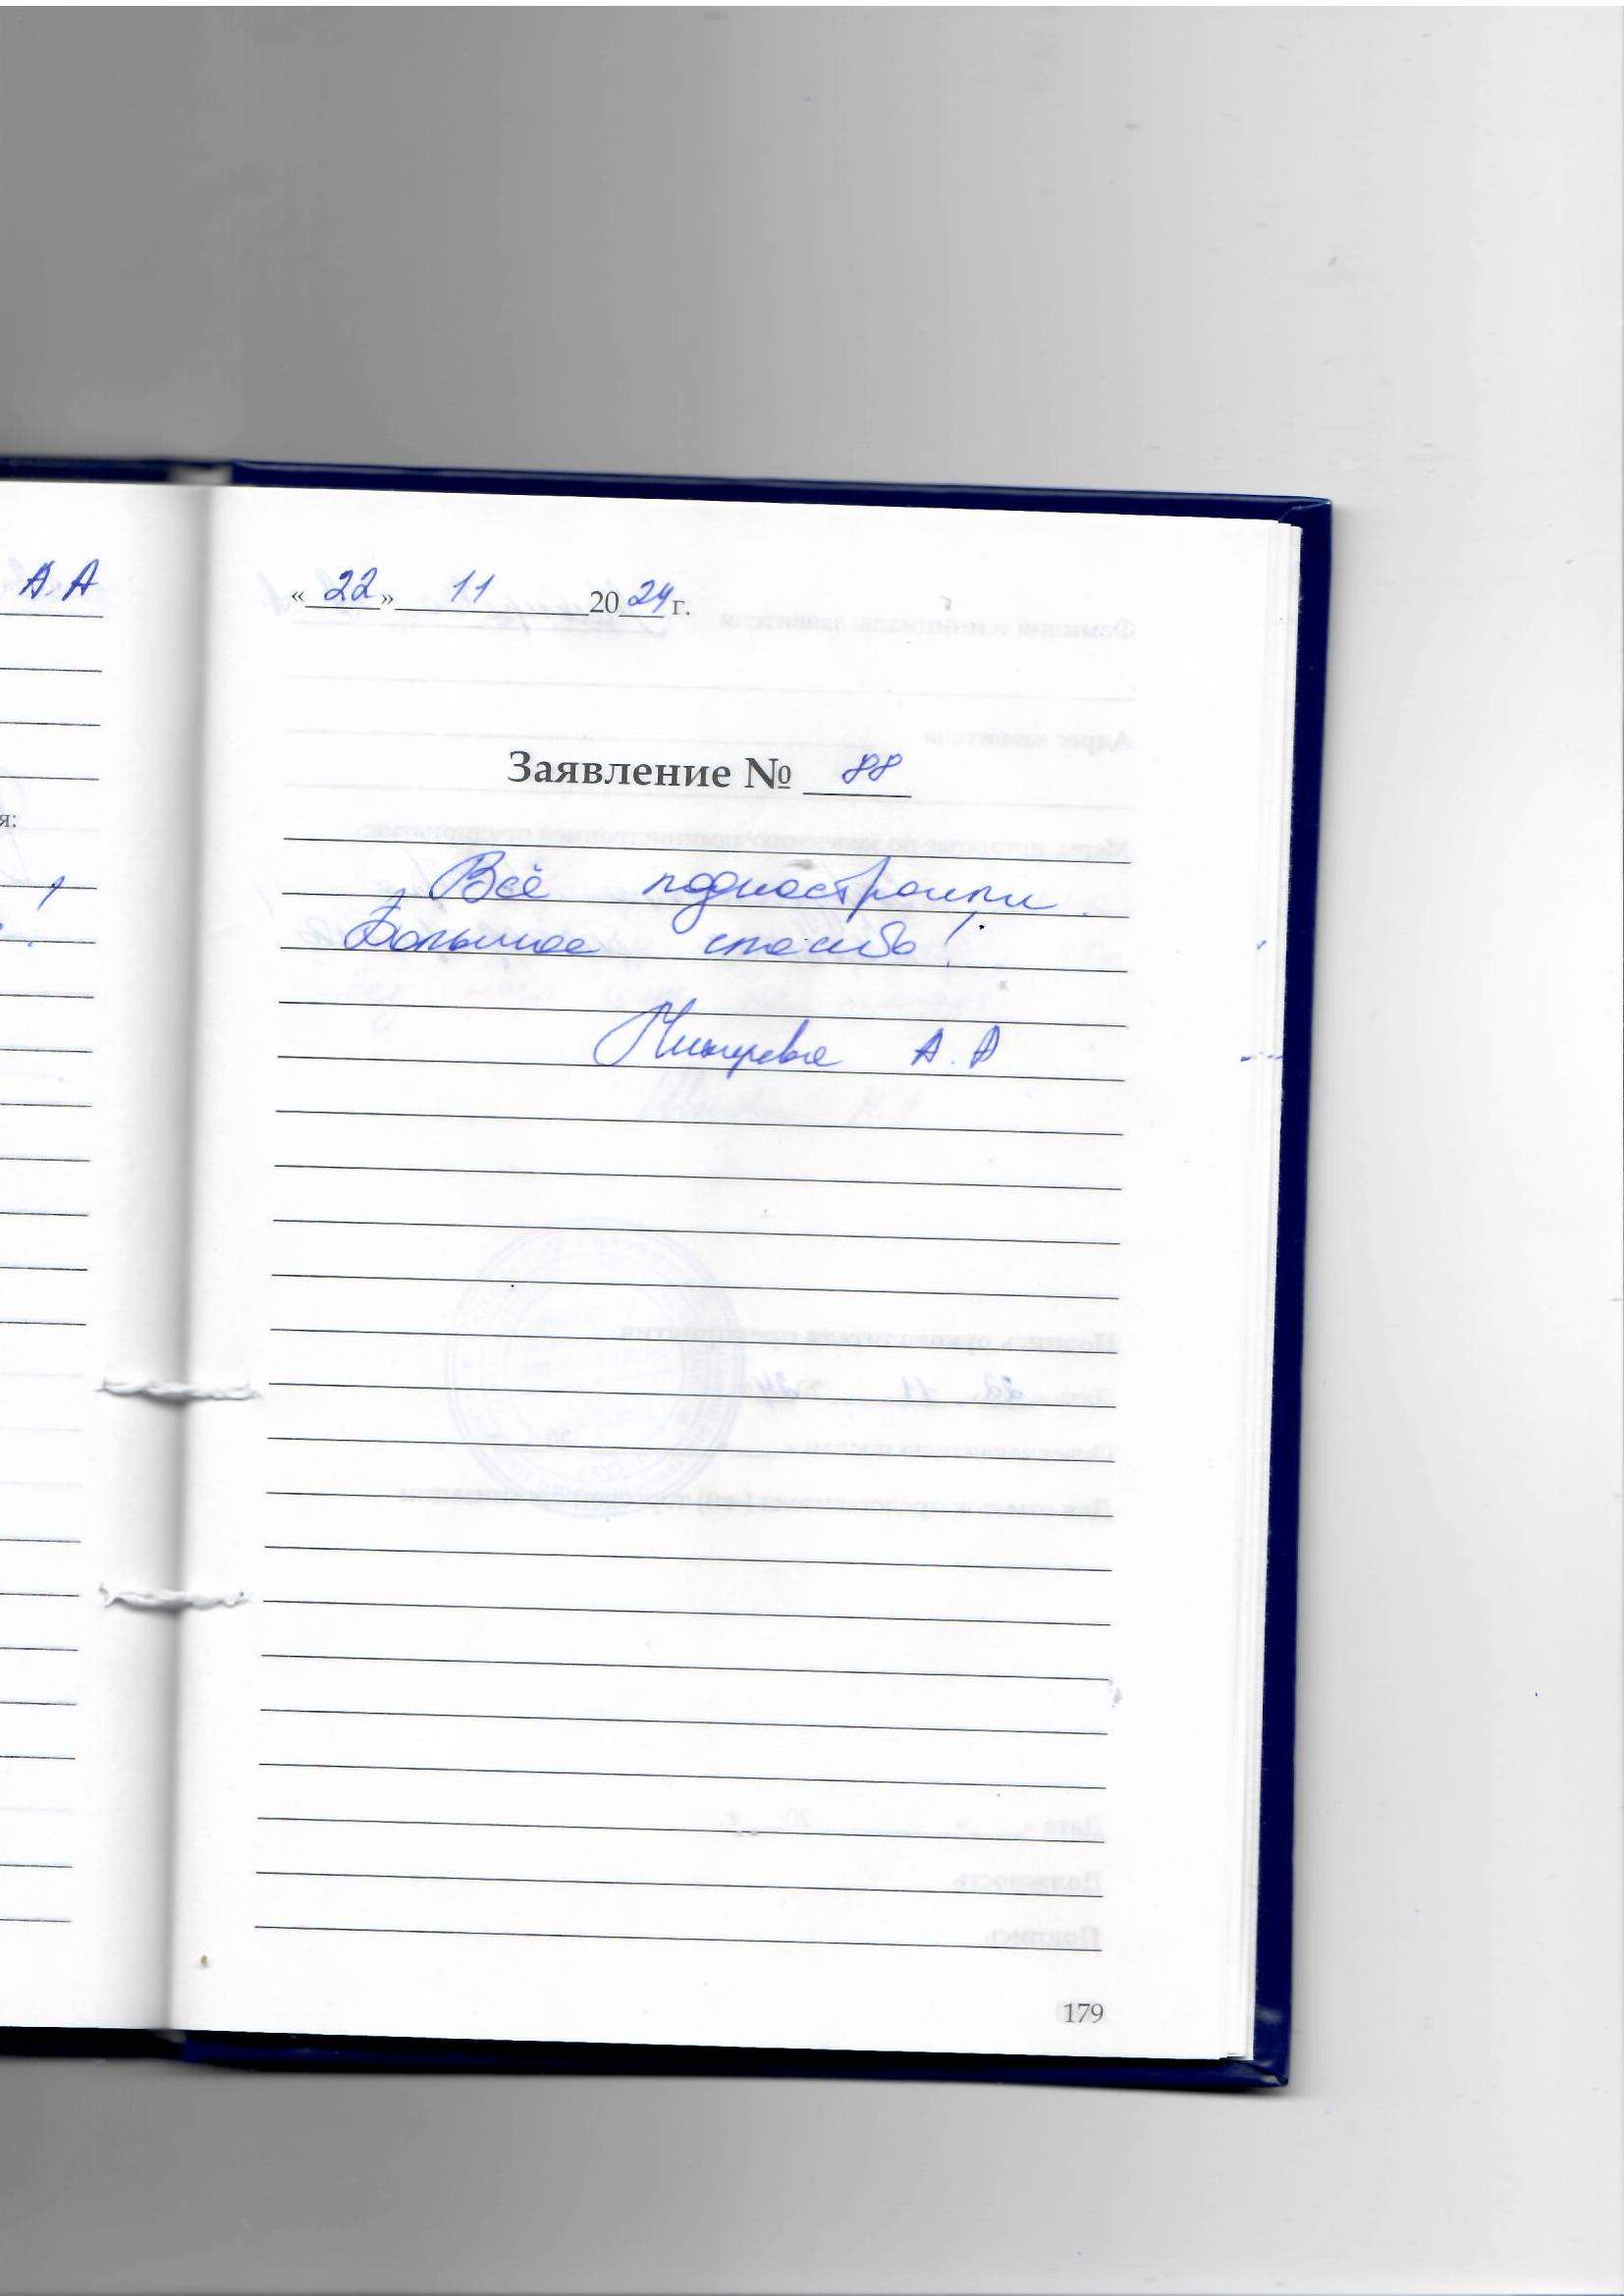 А.А
я:
«22» 11 2024 г.
Заявление № 88
Всё поднастроили.
Большое спасибо!
А.А
179